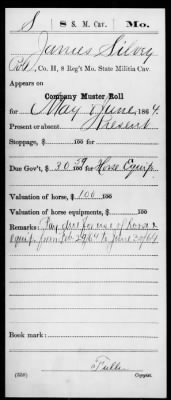 S | 8 S. M. Cav. | Mo.
James Silvey
Pvt, Co. H, 8 Reg't Mo. State Militia Cav.
Appears on
Company Muster Roll
for May & June, 1864.
Present or absent Present
Stoppage, $ 100 for
Due Gov't, $ 30 39/100 for Horse Equip
Valuation of horse, $ 100 100
Valuation of horse equipments, $ 100
Remarks: Pay due for use of horse &
equip. from Feb 29/64 to June 30/64
Book mark:
Fuller
(358) Copyist.